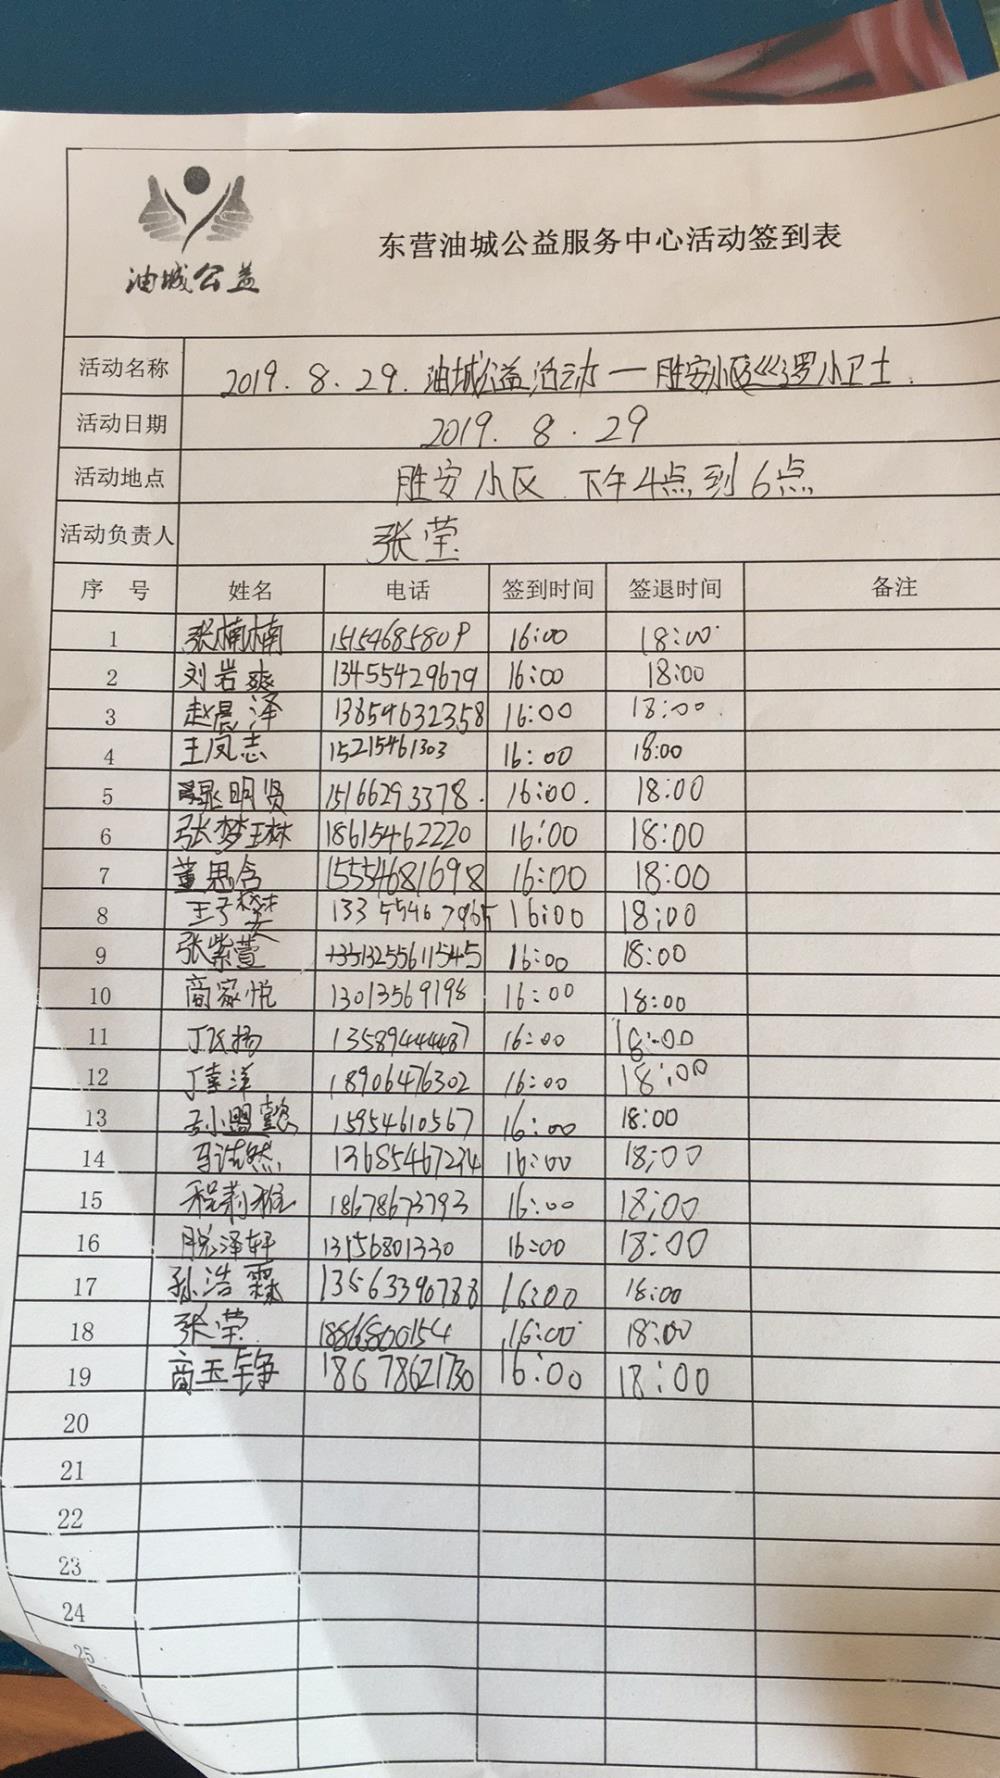 油城公益
东营油城公益服务中心活动签到表
活动名称 2019.8.29.油城公益活动一胜安小区巡逻小卫士.
活动日期 2019.8.29
活动地点 胜安小区.下午4点到6点
活动负责人 张莹
序号 姓名 电话 签到时间 签退时间 备注
1 张楠楠 1515468580 16:00 18:00
2 刘岩爽 13455429679 16:00 18:00
3 赵晨泽 13854632358 16:00 18:00
4 王凤志 15215461303 16:00 18:00
5 明贤 15166293378. 16:00. 18:00
6 张梦琳 18615462220 16:00 18:00
7 董思含 15554681698 16:00 18:00
8 王子 13355467965 16:00 18:00
9 张紫萱 13255611545 16:00 18:00
10 商家悦 13013569198 16:00 18:00
11 丁飞扬 13589444487 16:00 18:00
12 丁幸洋 18906476302 16:00 18:00
13 孙盟懿 15954610567 16:00 18:00
14 马浩然 13685467234 16:00 18:00
15 程莉雅 18678673793 16:00 18:00
16 脱泽轩 13156801330 16:00 18:00
17 孙浩霖 13563390788 16:00 18:00
18 张莹 16:00 18:00
19 商玉铮 18678621730 16:00 18:00
20
21
22
23
24
25